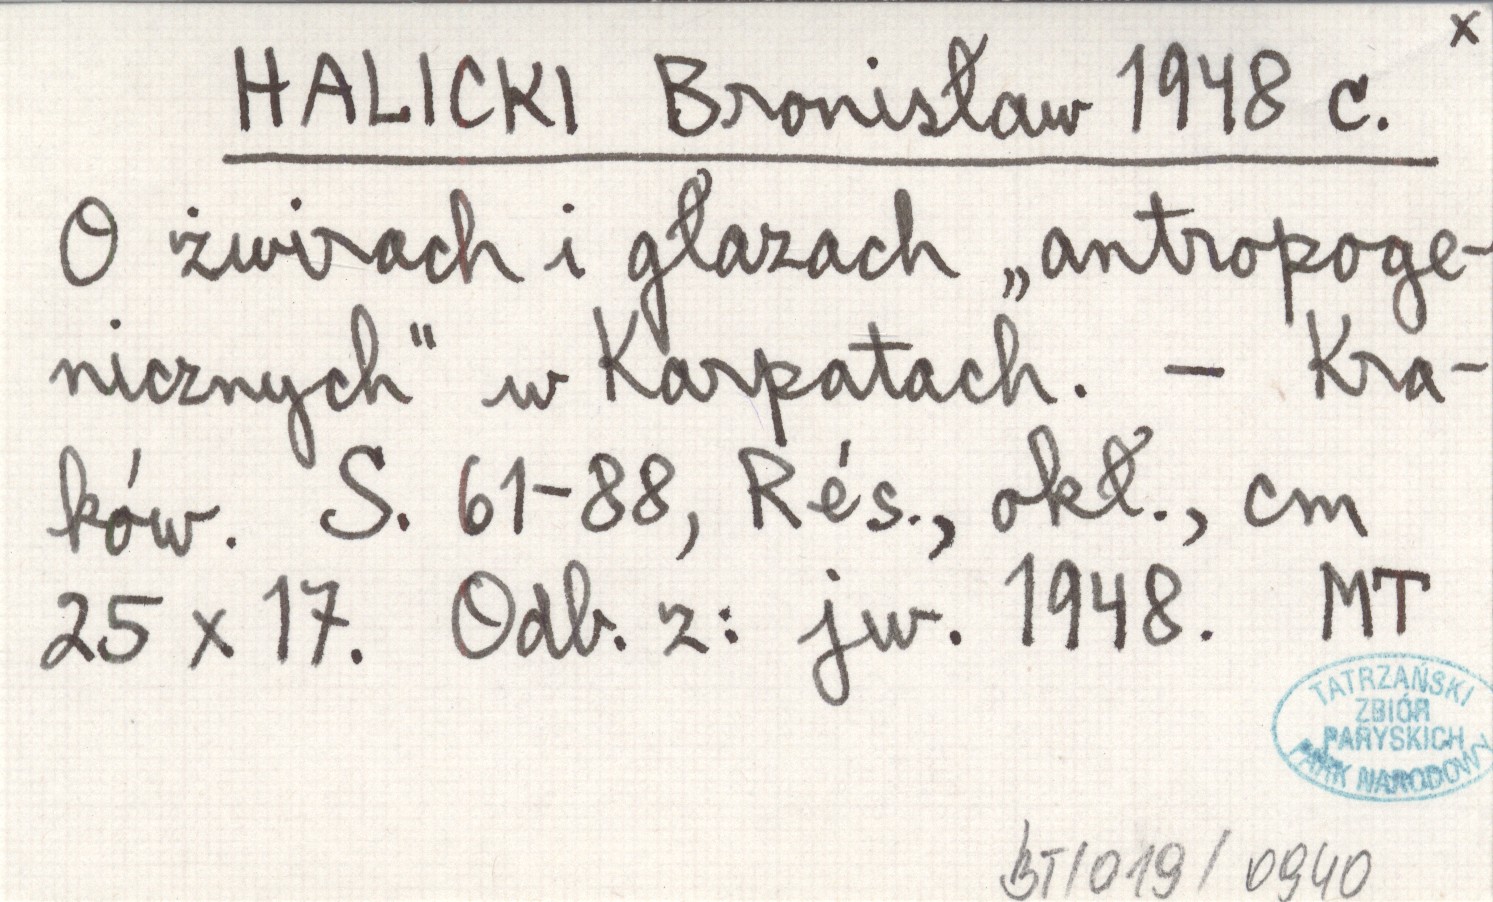 x
HALICKI Bronisław 1948 c.
O żwirach i głazach „antropoge-
nicznych" w Karpatach. – Kra-
ków. S. 61–88, Rés., okł., cm
25 x 17. Odb. z: jw. 1948. MT
TATRZAŃSKI
ZBIÓR
PARYSKICH
PARK NARODOWY
BT/019/0940